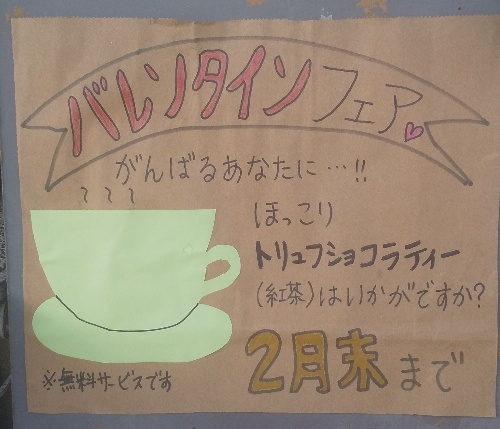 バレンタインフェア
がんばるあなたに…!!
ほっこり
トリュフショコラティー
(紅茶)はいかがですか?
2月末まで
※無料サービスです